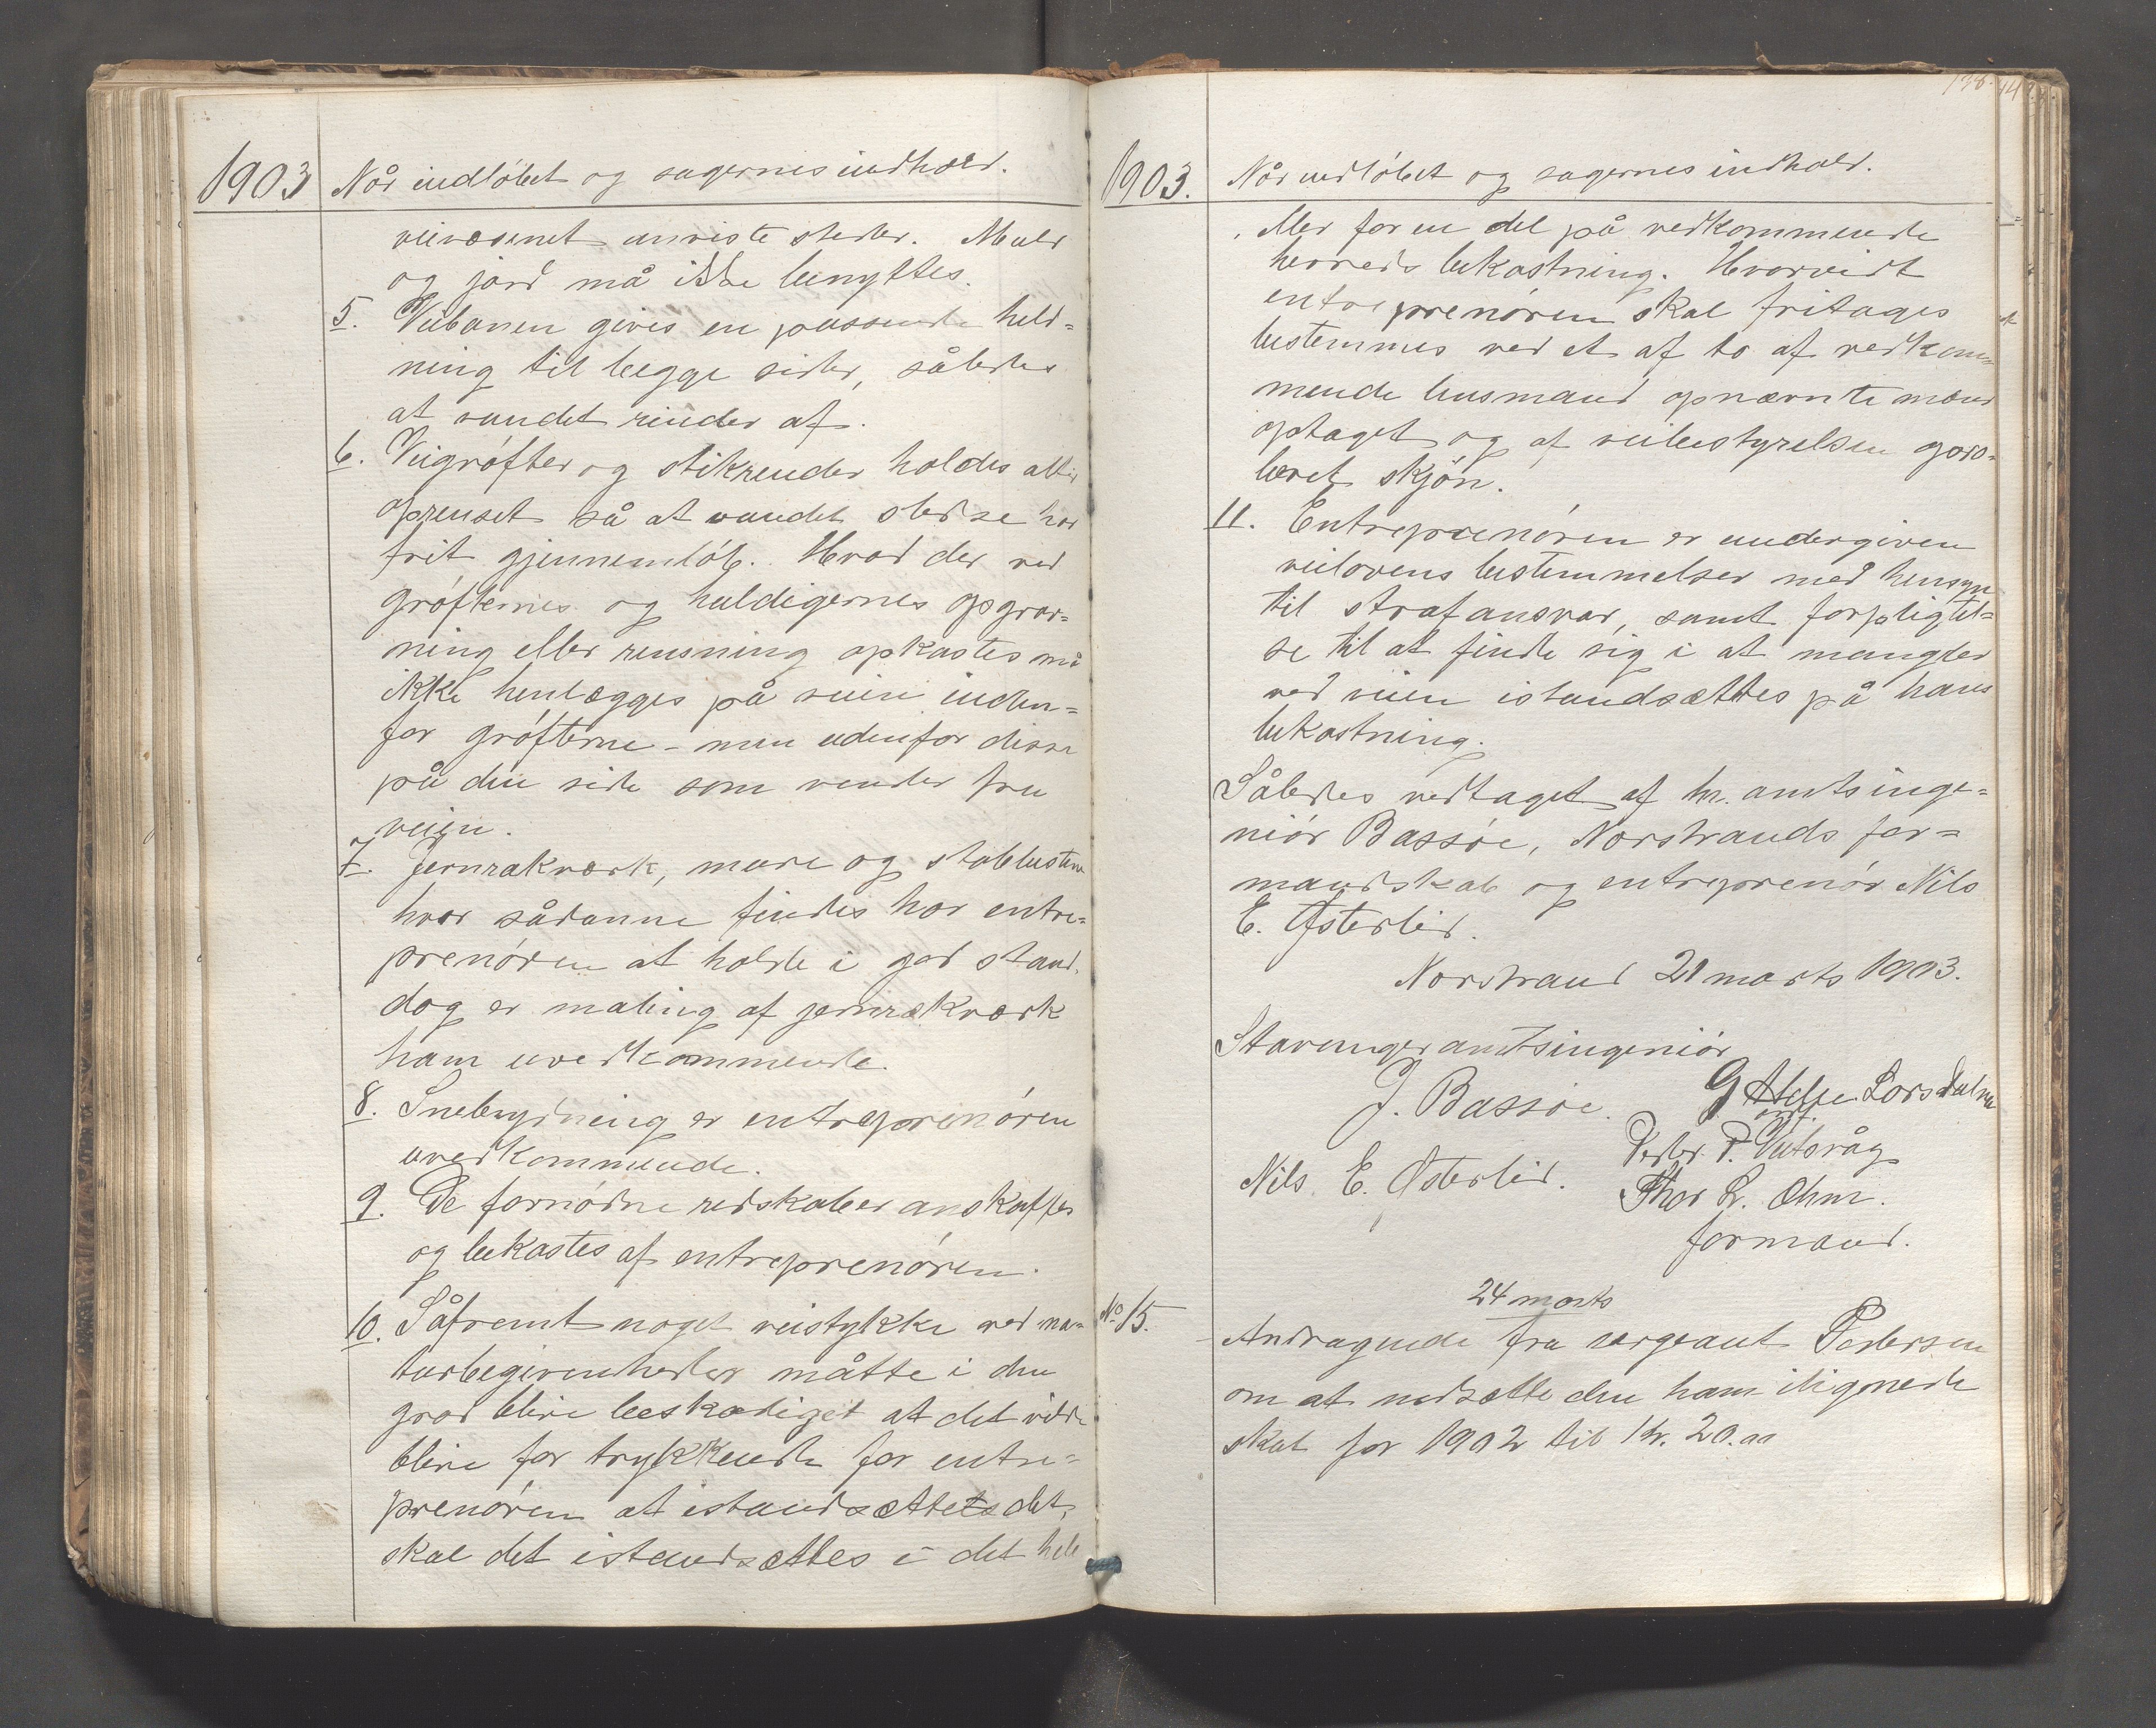 1903 Når indløbet og sagernes indhold.
veivæsenet anviste steder. Muld
og jord må ikke benyttes.
5. Veibanen gives en passende held=
ning til begge sider, således
at vandet rinder af.
6. Veigrøfter og stikrender holdes altid
oprenset så at vandet stedse har
frit gjennemløb. Hvad der ved
grøfternes og huldigernes opgrav=
ning eller rensning opkastes må
ikke henlægges på veien inden=
for grøfterne – men udenfor disse
på den side som vender fra
veien.
7. Jernrækværk, mure og stabbestene
hvor sådanne findes har entre=
prenøren at holde i god stand,
dog er maling af jernrækværk
ham uvedkommende.
8. Snebrydning er entreprenøren
uvedkommende.
9. De fornødne redskaber anskaffes
og bekostes af entreprenøren.
10. Såfremt noget veistykke ved na=
turbegivenheder måtte i den
grad blive beskadiget at det vilde
blive for trykkende for entre=
prenøren at istandsættets det,
skal det istandsættes i det hele
138. 14
1903. Når indløbet og sagernes indhold.
eller for en del på vedkommende
herreds bekostning. Hvorvidt
entreprenøren skal fritages
bestemmes ved et af to af vedkom=
mende lensmand opnævnte mænd
optaget og af veibestyrelsen god=
læret skjøn.
11. Entreprenøren er undergiven
veilovens bestemmelser med hensyn
til strafansvar, samt forpligtel=
se til at finde sig i at mangler
ved veien istandsættes på hans
bekostning.
Således vedtaget af hr. amtsinge=
niør Bassøe, Norstrands for=
mandskab og entreprenør Nils
E. Østerlid.
Norstrand 21 marts 1903.
Stavanger amtsingeniør
J. Bassøe.
Nils E. Østerlid.
Peder P. Vutsvåg
Thor L. Ohm.
formand.
24 marts
No 15. Andragende fra sergeant Pedersen
om at nedsætte den ham ilignede
skat for 1902 til kr. 20.00